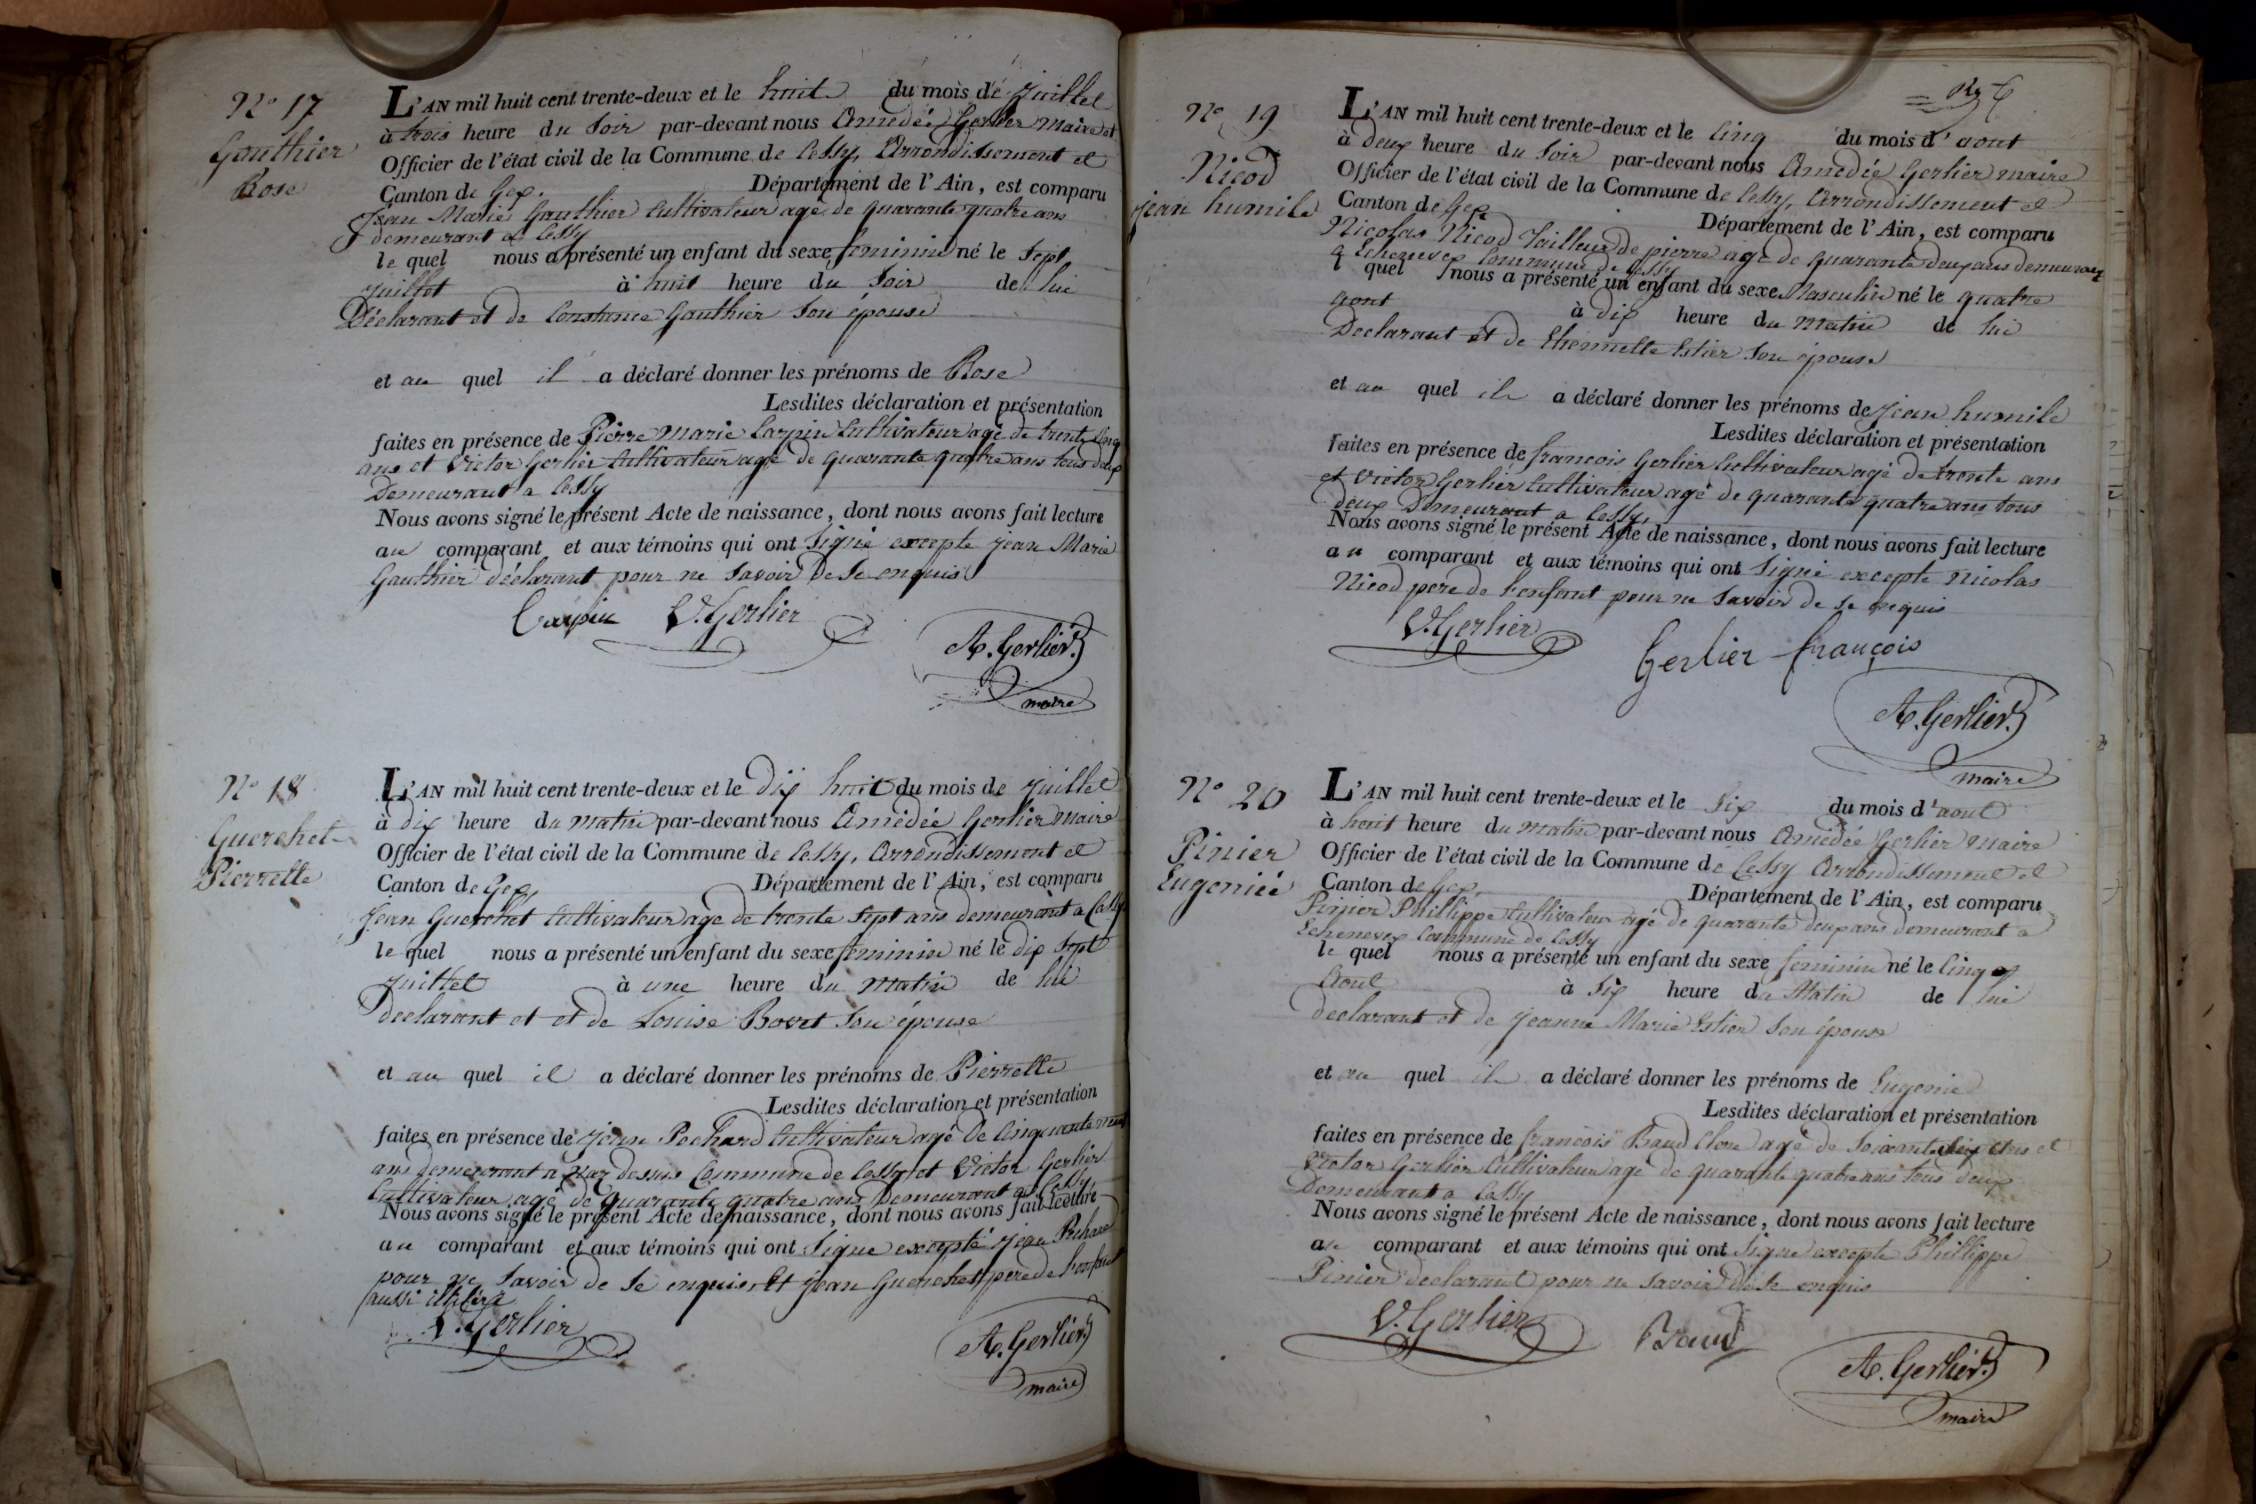 N° 17
Gauthier
Rose
L'AN mil huit cent trente-deux et le huit du mois de Juillet
à trois heure du Soir par-devant nous Amedée Gerlier Maire et
Officier de l'état civil de la Commune de Cessy, Arrondissement et
Canton de Gex. Département de l'Ain, est comparu
Jean Marie Gauthier Cultivateur agé de quarante quatre ans
demeurant a Cessy
le quel nous a présenté un enfant du sexe feminin né le Sept
Juillet à huit heure du Soir de lui
Déclarant et de Constance Gauthier Son épouse
et au quel il a déclaré donner les prénoms de Rose
Lesdites déclaration et présentation
faites en présence de Pierre Marie Carpin Cultivateur agé de trente Cinq
ans et Victor Gerlier Cultivateur agé de quarante quatre ans tous deux
Demeurant a Cessy
Nous avons signé le présent Acte de naissance, dont nous avons fait lecture
au comparant et aux témoins qui ont Signé excepte jean Marie
Gauthier déclarant pour ne Savoir De Se enquis
Carpin V. Gerlier
A. Gerlier
maire
N° 18
Guerchet
Pierrette
L'AN mil huit cent trente-deux et le Dix huit du mois de Juillet
à Dix heure du Matin par-devant nous Amédée Gerlier Maire
Officier de l'état civil de la Commune de Cessy, Arrondissement et
Canton de Gex Département de l'Ain, est comparu
Jean Guerchet Cultivateur age de trente Sept ans demeurant a Cessy
le quel nous a présenté un enfant du sexe feminin né le dix Sept
Juillet à une heure du Matin de lui
declarant et et de Louise Bovet Son épouse
et au quel il a déclaré donner les prénoms de Pierrette
Lesdites déclaration et présentation
faites en présence de jean Pochard Cultivateur agé De Cinquante neuf
ans demeurant a dessus Commune de Cessy et Victor Gerlier
Cultivateur agé de quarante quatre ans Demeurant a Cessy
Nous avons signé le présent Acte de naissance, dont nous avons fait lecture
au comparant et aux témoins qui ont Signe excepté jean Pochard
pour ne Savoir de Se enquis Et jean Guerchet pere de l'enfant
aussi
V. Gerlier
A. Gerlier
maire
N° 19
Nicod
jean humile
L'AN mil huit cent trente-deux et le Cinq du mois d'aout
à Deux heure du Soir par-devant nous Amédée Gerlier maire
Officier de l'état civil de la Commune de Cessy, Arrondissement et
Canton de Gex Département de l'Ain, est comparu
Nicolas Nicod Tailleur de pierre agé de quarante deux ans demeurant
a Echenevex Commune de Cessy
quel nous a présenté un enfant du sexe Masculin né le quatre
aout à dix heure du Matin de lui
Declarant et de Etiennette Estier Son épouse
et au quel il a déclaré donner les prénoms de jean humile
Lesdites déclaration et présentation
faites en présence de francois Gerlier Cultivateur agé de trente ans
et Victor Gerlier Cultivateur agé de quarante quatre ans tous
deux Demeurant a Cessy,
Nous avons signé le présent Acte de naissance, dont nous avons fait lecture
au comparant et aux témoins qui ont Signé excepte Nicolas
Nicod pere de l'enfant pour ne Savoir de Se enquis
V. Gerlier
Gerlier françois
A. Gerlier
maire
N° 20
Pinier
Eugenie
L'AN mil huit cent trente-deux et le Six du mois d'aout
à huit heure du Matin par-devant nous Amédée Gerlier Maire
Officier de l'état civil de la Commune de Cessy Arrondissement et
Canton de Gex. Département de l'Ain, est comparu
Pinier Phillippe Cultivateur agé de quarante deux ans Demeurant a
Echenevex Commune de Cessy
le quel nous a présenté un enfant du sexe feminin né le Cinq
Aout à Six heure du Matin de lui
declarant et de Jeanne Marie Estier Son épouse
et au quel il a déclaré donner les prénoms de Eugenie
Lesdites déclaration et présentation
faites en présence de francois Baud agé de ans et
Victor Gerlier Cultivateur agé de quarante quatre ans tous deux
Demeurant a Cessy
Nous avons signé le présent Acte de naissance, dont nous avons fait lecture
au comparant et aux témoins qui ont Signe excepte Phillippe
Pinier declarant pour ne Savoir de Se enquis
V. Gerlier Baud
A. Gerlier
maire